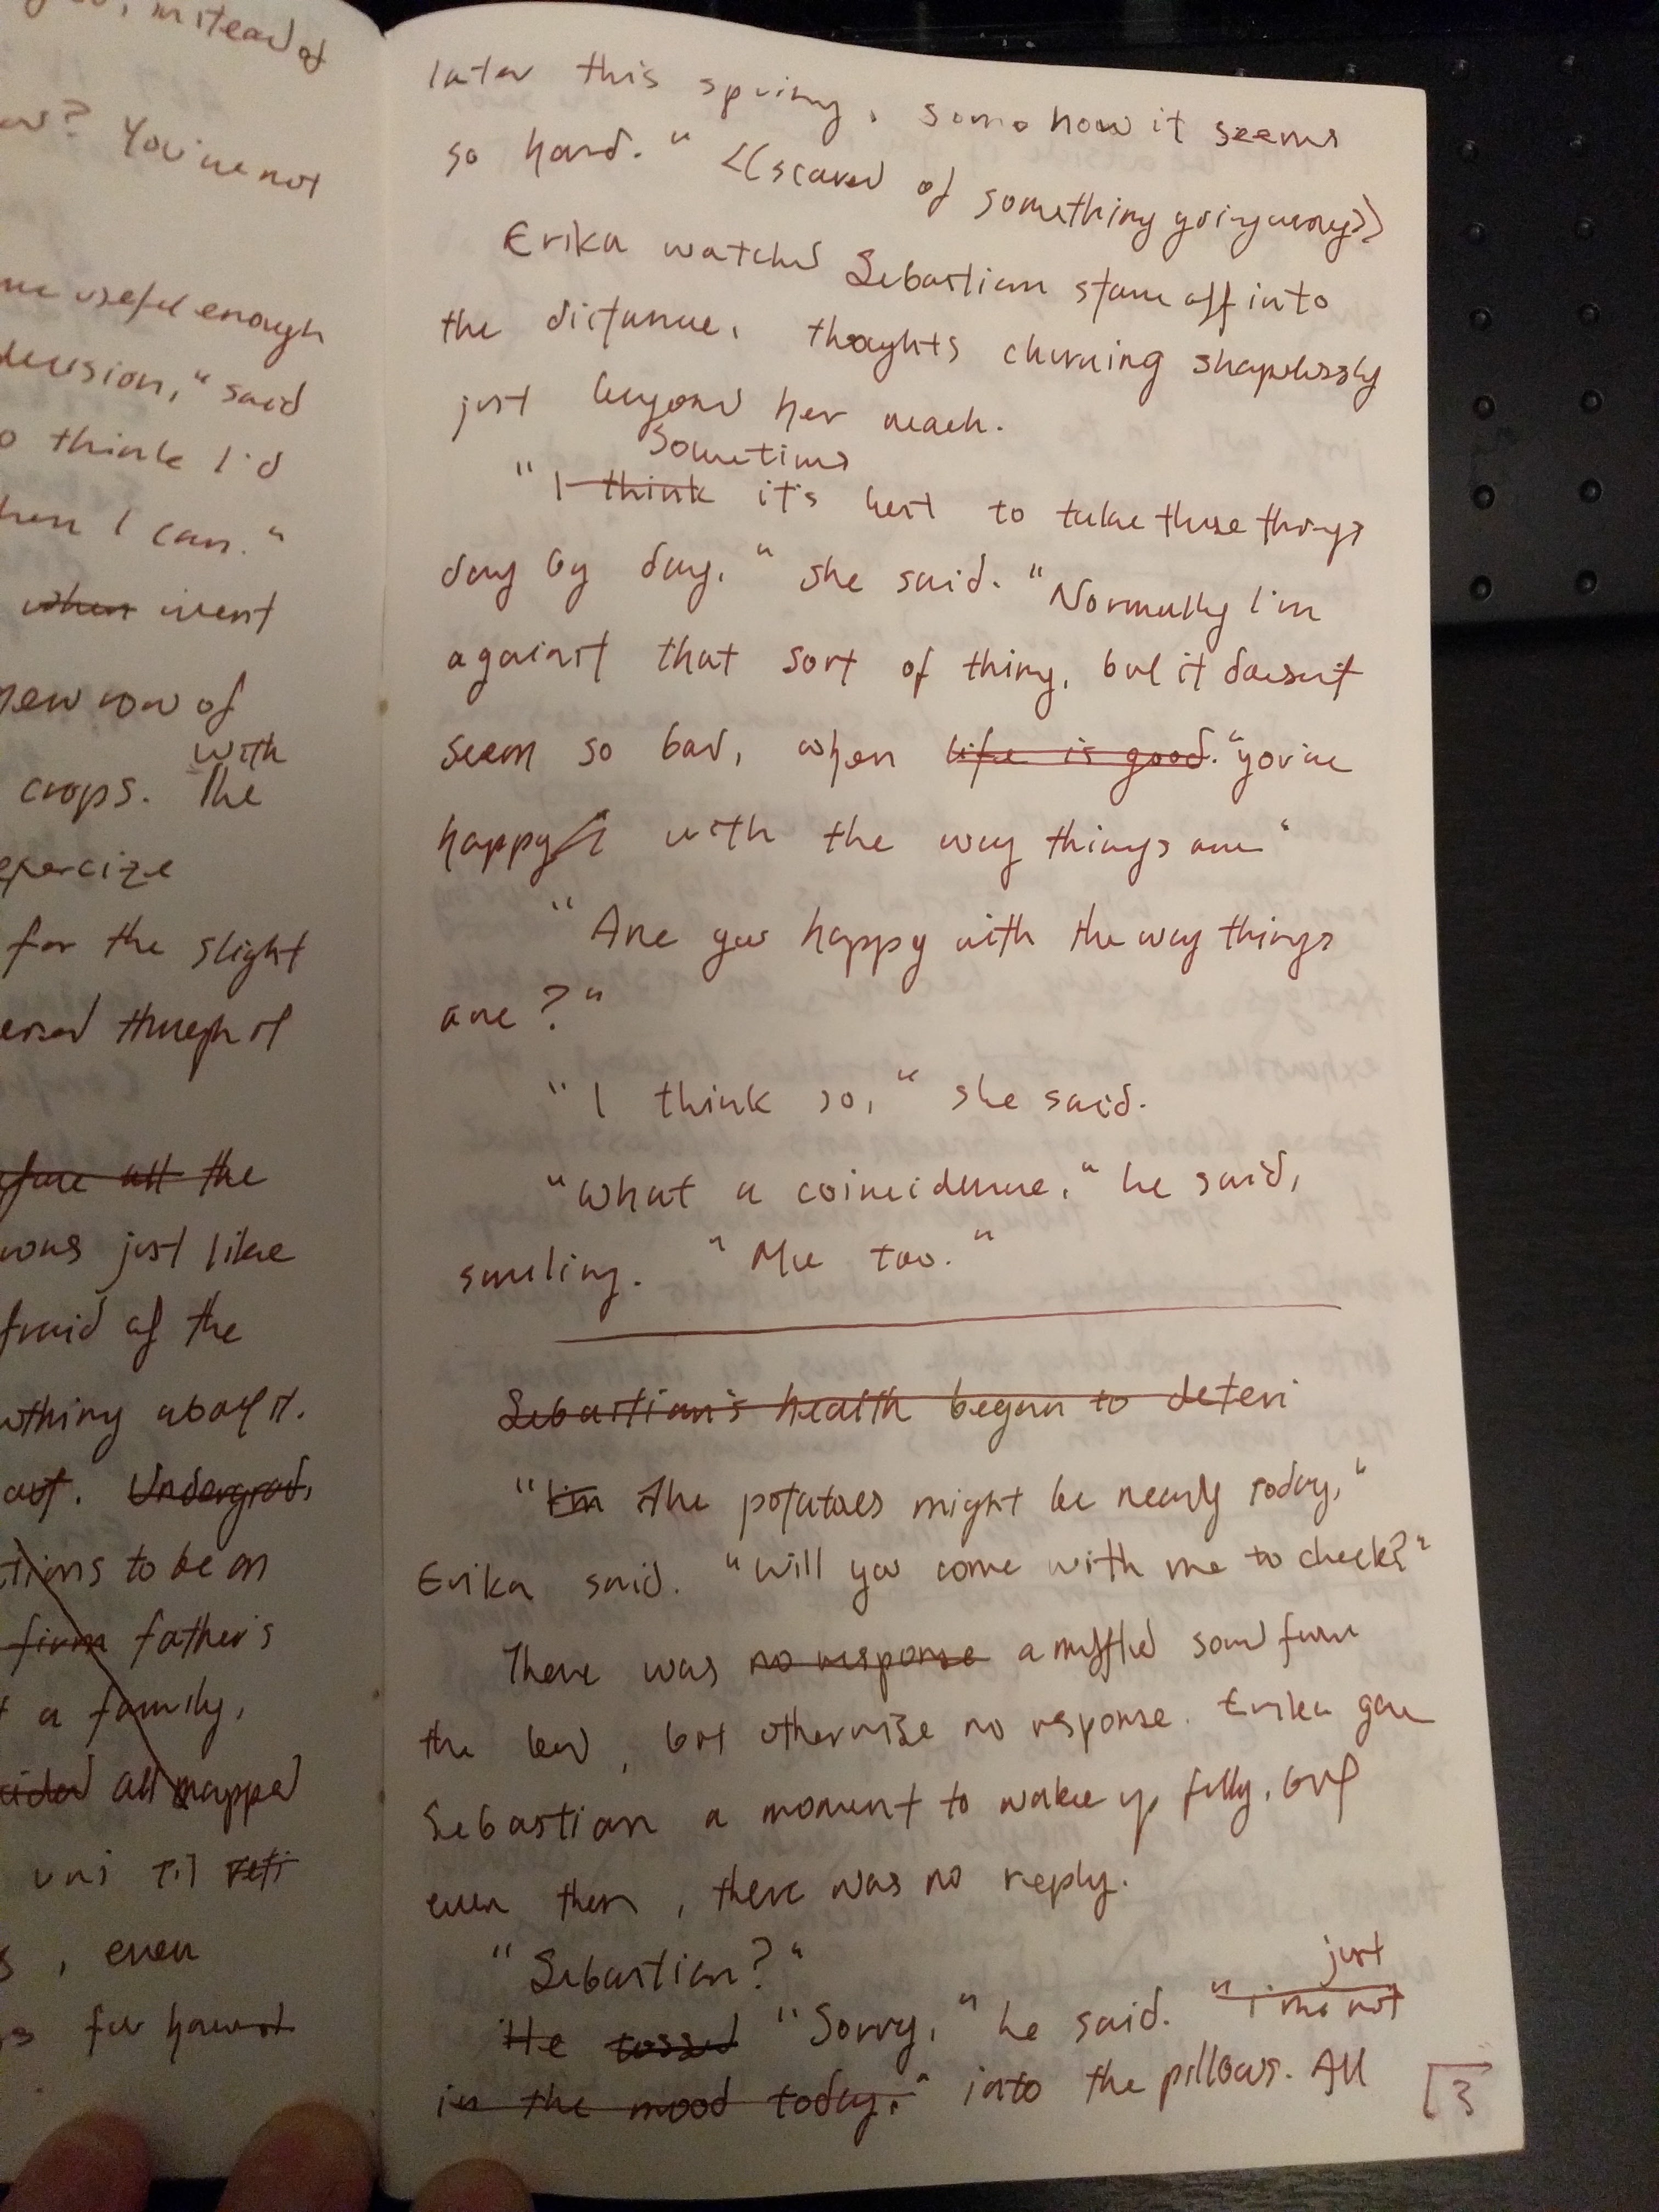 instead of
You're not
me useful enough
decision," said
think I'd
when I can."
when went
new row of
with
crops. The
for the slight
through it
the
just like
afraid of the
nothing about it.
out. Undergrad,
to be an
firm father's
a family,
all mapped
uni til reti
, even
for
later this spring, somehow it seems
so hard." <<scared of something going wrong>>
Erika watched Sebastian stare off into
the distance, thoughts churning shapelessly
just beyond her reach.
Sometimes
"I think it's best to take these things
day by day," she said. "Normally I'm
against that sort of thing, but it doesn't
seem so bad, when life is good." you're
happy with the way things are"
"Are you happy with the way things
are?"
"I think so," she said.
"What a coincidence," he said,
smiling. "Me too."
Sebastian's health began to deteri
"I'm The potatoes might be ready today,"
Erika said. "Will you come with me to check?"
There was no response a muffled sound from
the bed, but otherwise no response. Erika gave
Sebastian a moment to wake up fully, but
even then, there was no reply.
"Sebastian?"
just
He tossed "Sorry," he said. "I'm not
in the mood today." into the pillows. All
13